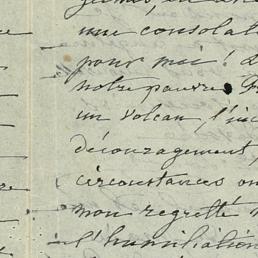 une consolat
pour moi !
notre pauvre
un volcan, l'in
découragement,
circonstances on
mon regretté
l'humiliation